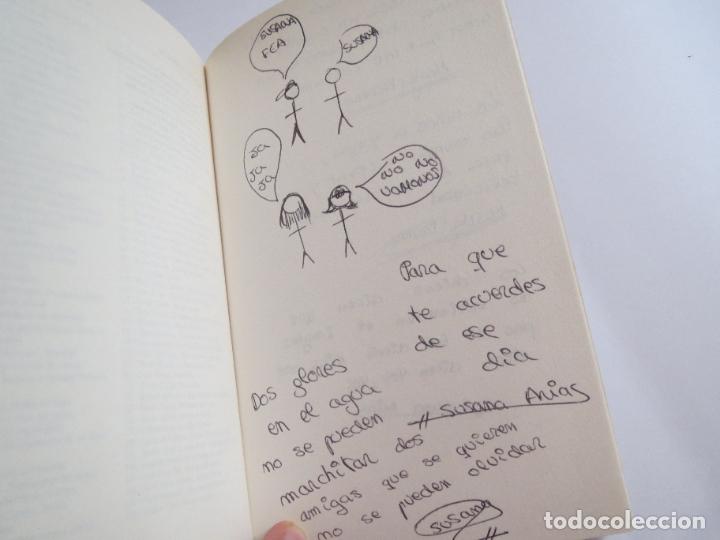 SUSANA
FEA
SUSANA
JA
JA
JA
NO
NO NO
VAMONOS
Para que
te acuerdes
de ese
dia
# Susana Arias
Dos flores
en el agua
no se pueden
marchitar dos
amigas que se quieren
no se pueden olvidar
susana
#
todocoleccion
todocoleccion.net